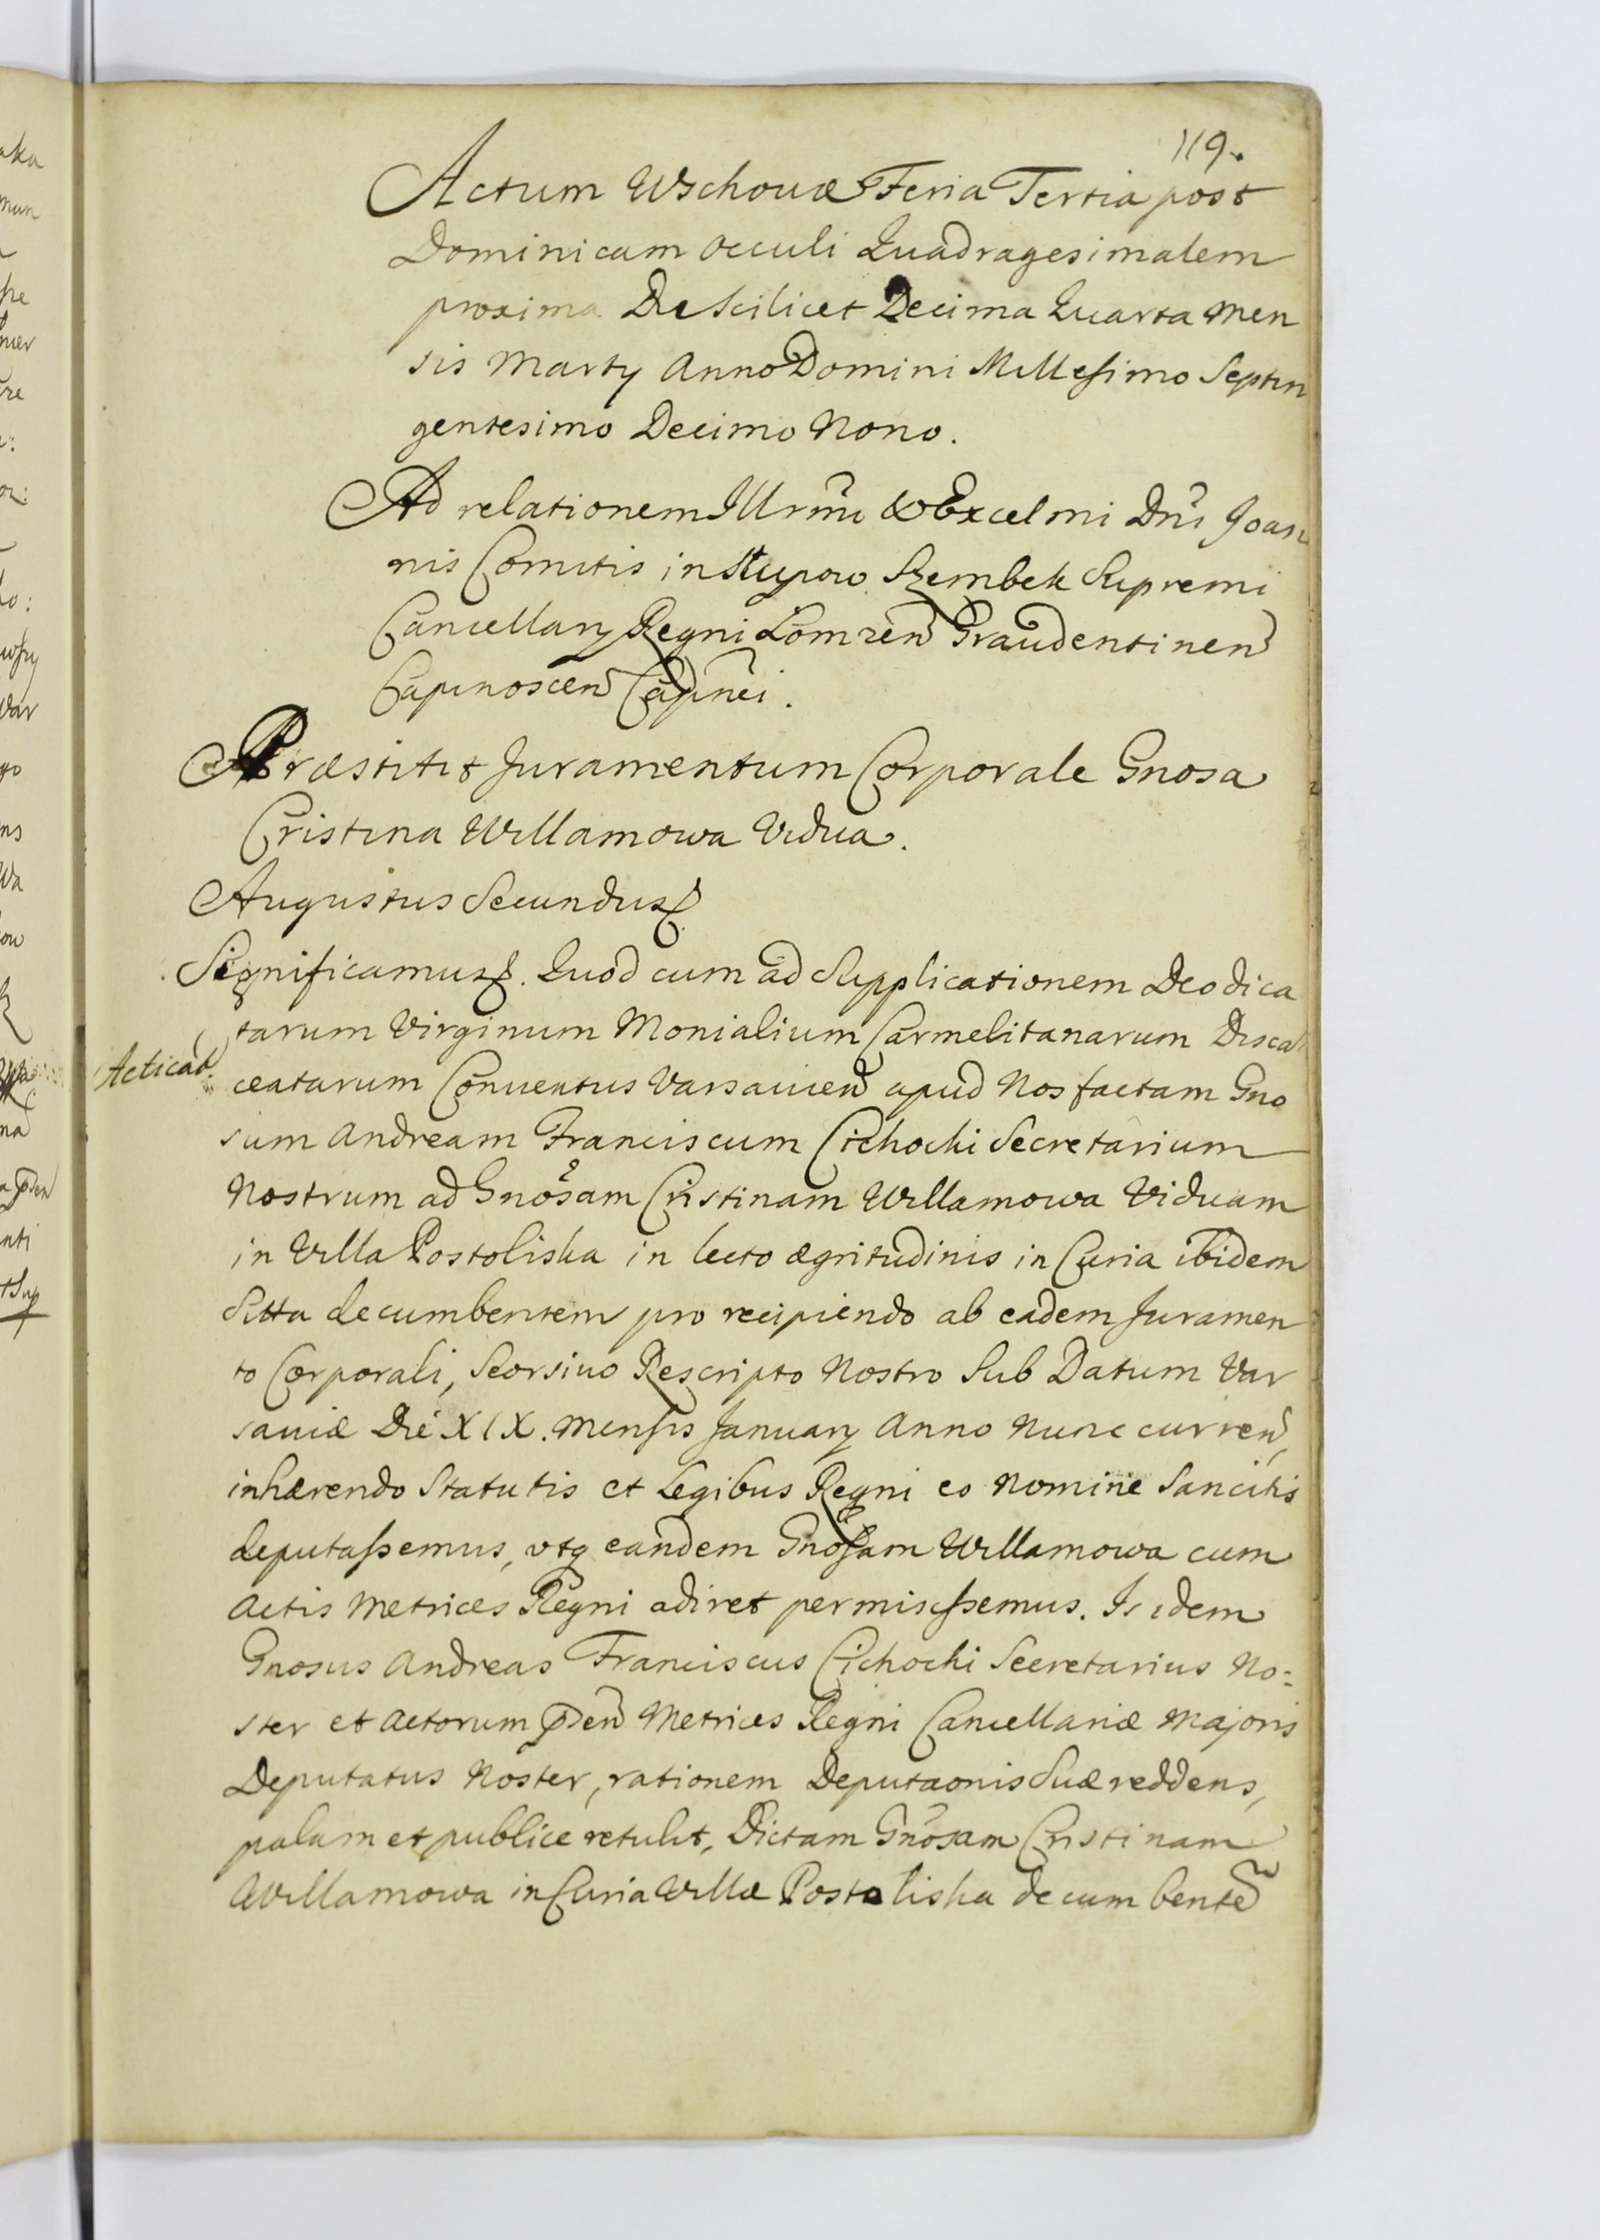 119.
Actum Wschovæ Feria Tertia post
Dominicam Occuli Quadragesimalem
proxima Die Scilicet Decima Quarta Men
sis Martij Anno Domini Millesimo Septin
gentesimo Decimo Nono.
Ad relationem Illrmi & Excelmi Dni Joan
nis Comitis in Słupow Szembek Supremi
Cancellarij Regni Lomzen Graudentinen
Capinoscen Capnei.
Præstitit Juramentum Corporale Gnosa
Cristina Willamowa Vidua.
Augustus Secundus
Significamus. Quod cum ad Supplicationem Deo dica
tarum Virginum Monialium Carmelitanarum Discal
Acticat.
ceatarum Conventus Varsavien apud Nos factam Gno
sum Andream Franciscum Cichocki Secretarium
Nostrum ad Gnosam Cristinam Willamowa Viduam
in Villa Postoliska in lecto ægritudinis in Curia ibidem
Sitta decumbentem pro recipiendo ab eadem Juramen
to Corporali, Seorsivo Rescripto Nostro Sub Datum Var
saviæ Die XIX. Mensis January Anno Nunc curren,
inhærendo Statutis et Legibus Regni eo Nomine Sancitis
deputassemus, utq eandem Gnosam Willamowa cum
Actis Metrices Regni adiret permisissemus. Is idem
Gnosus Andreas Franciscus Cichocki Secretarius No:
ster et Actorum pden Metrices Regni Cancellariæ Majoris
Deputatus Noster, rationem Deputaonis Suæ reddens,
palam et publice retulit, Dictam Gnosam Cristinam
Willamowa in Curia Villæ Postoliska decumbente